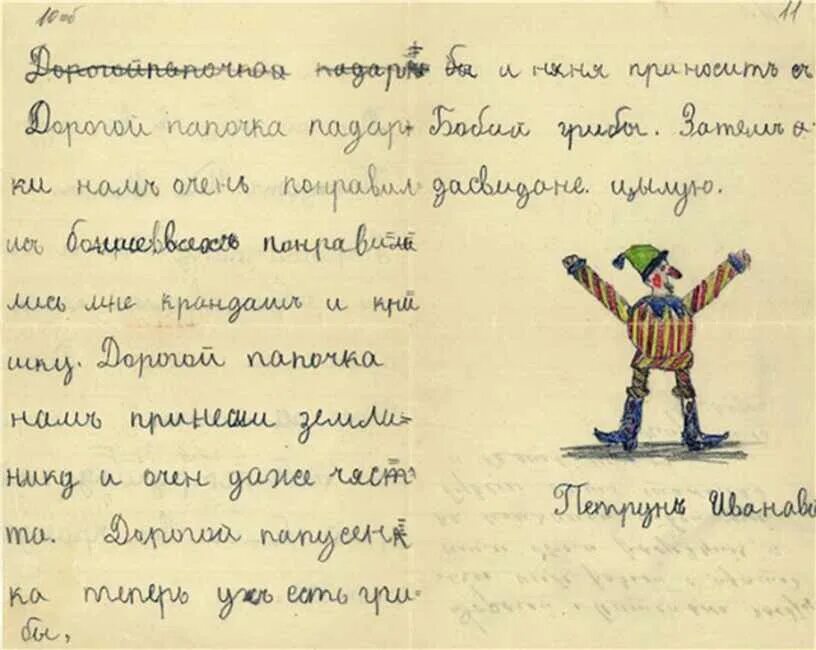 10 об
Дорогойпапочкоа падарк
Дорогой папочка падар-
ки намъ очень понравил-
ись понрави-
лись мне крандашъ и кни
шку. Дорогой папочка
намъ принесли земли=
нику и очен даже часто-
та. Дорогой папусень-
ка теперь ужъ есть гри-
бы,
11
бы и няня приноситъ съ
Бабий грибы. Затемъ а-
дасвидане. цылую.
Петрунъ Иванави